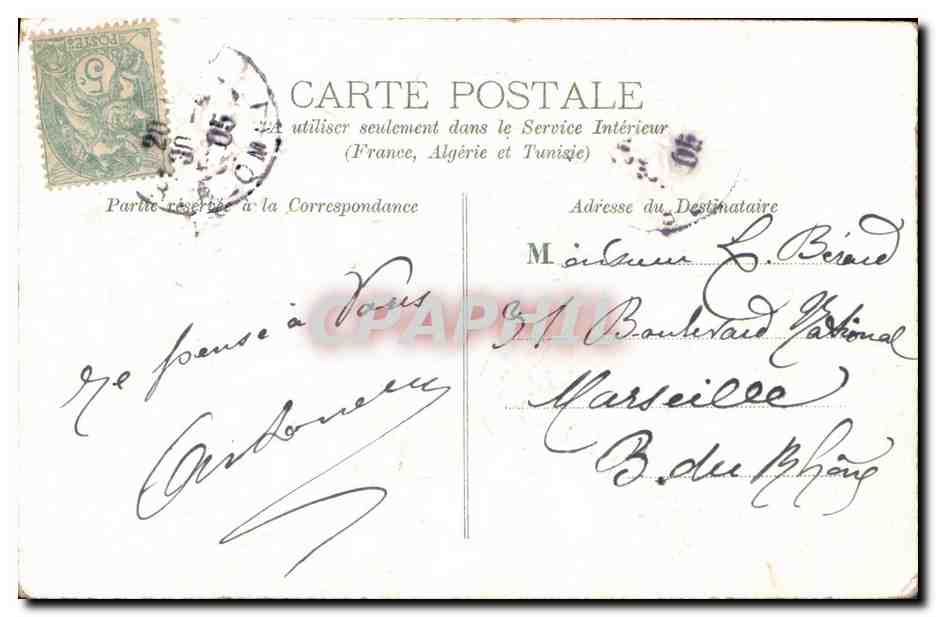 POSTES
5
20
05
CARTE POSTALE
A utiliser seulement dans le Service Intérieur
(France, Algérie et Tunisie)
05
Partie réservée à la Correspondance
Adresse du Destinataire
Je pense à Vous
Monsieur L. Bérard
31 Boulevard National
Marseille
B. du Rhône
CPAPHIL